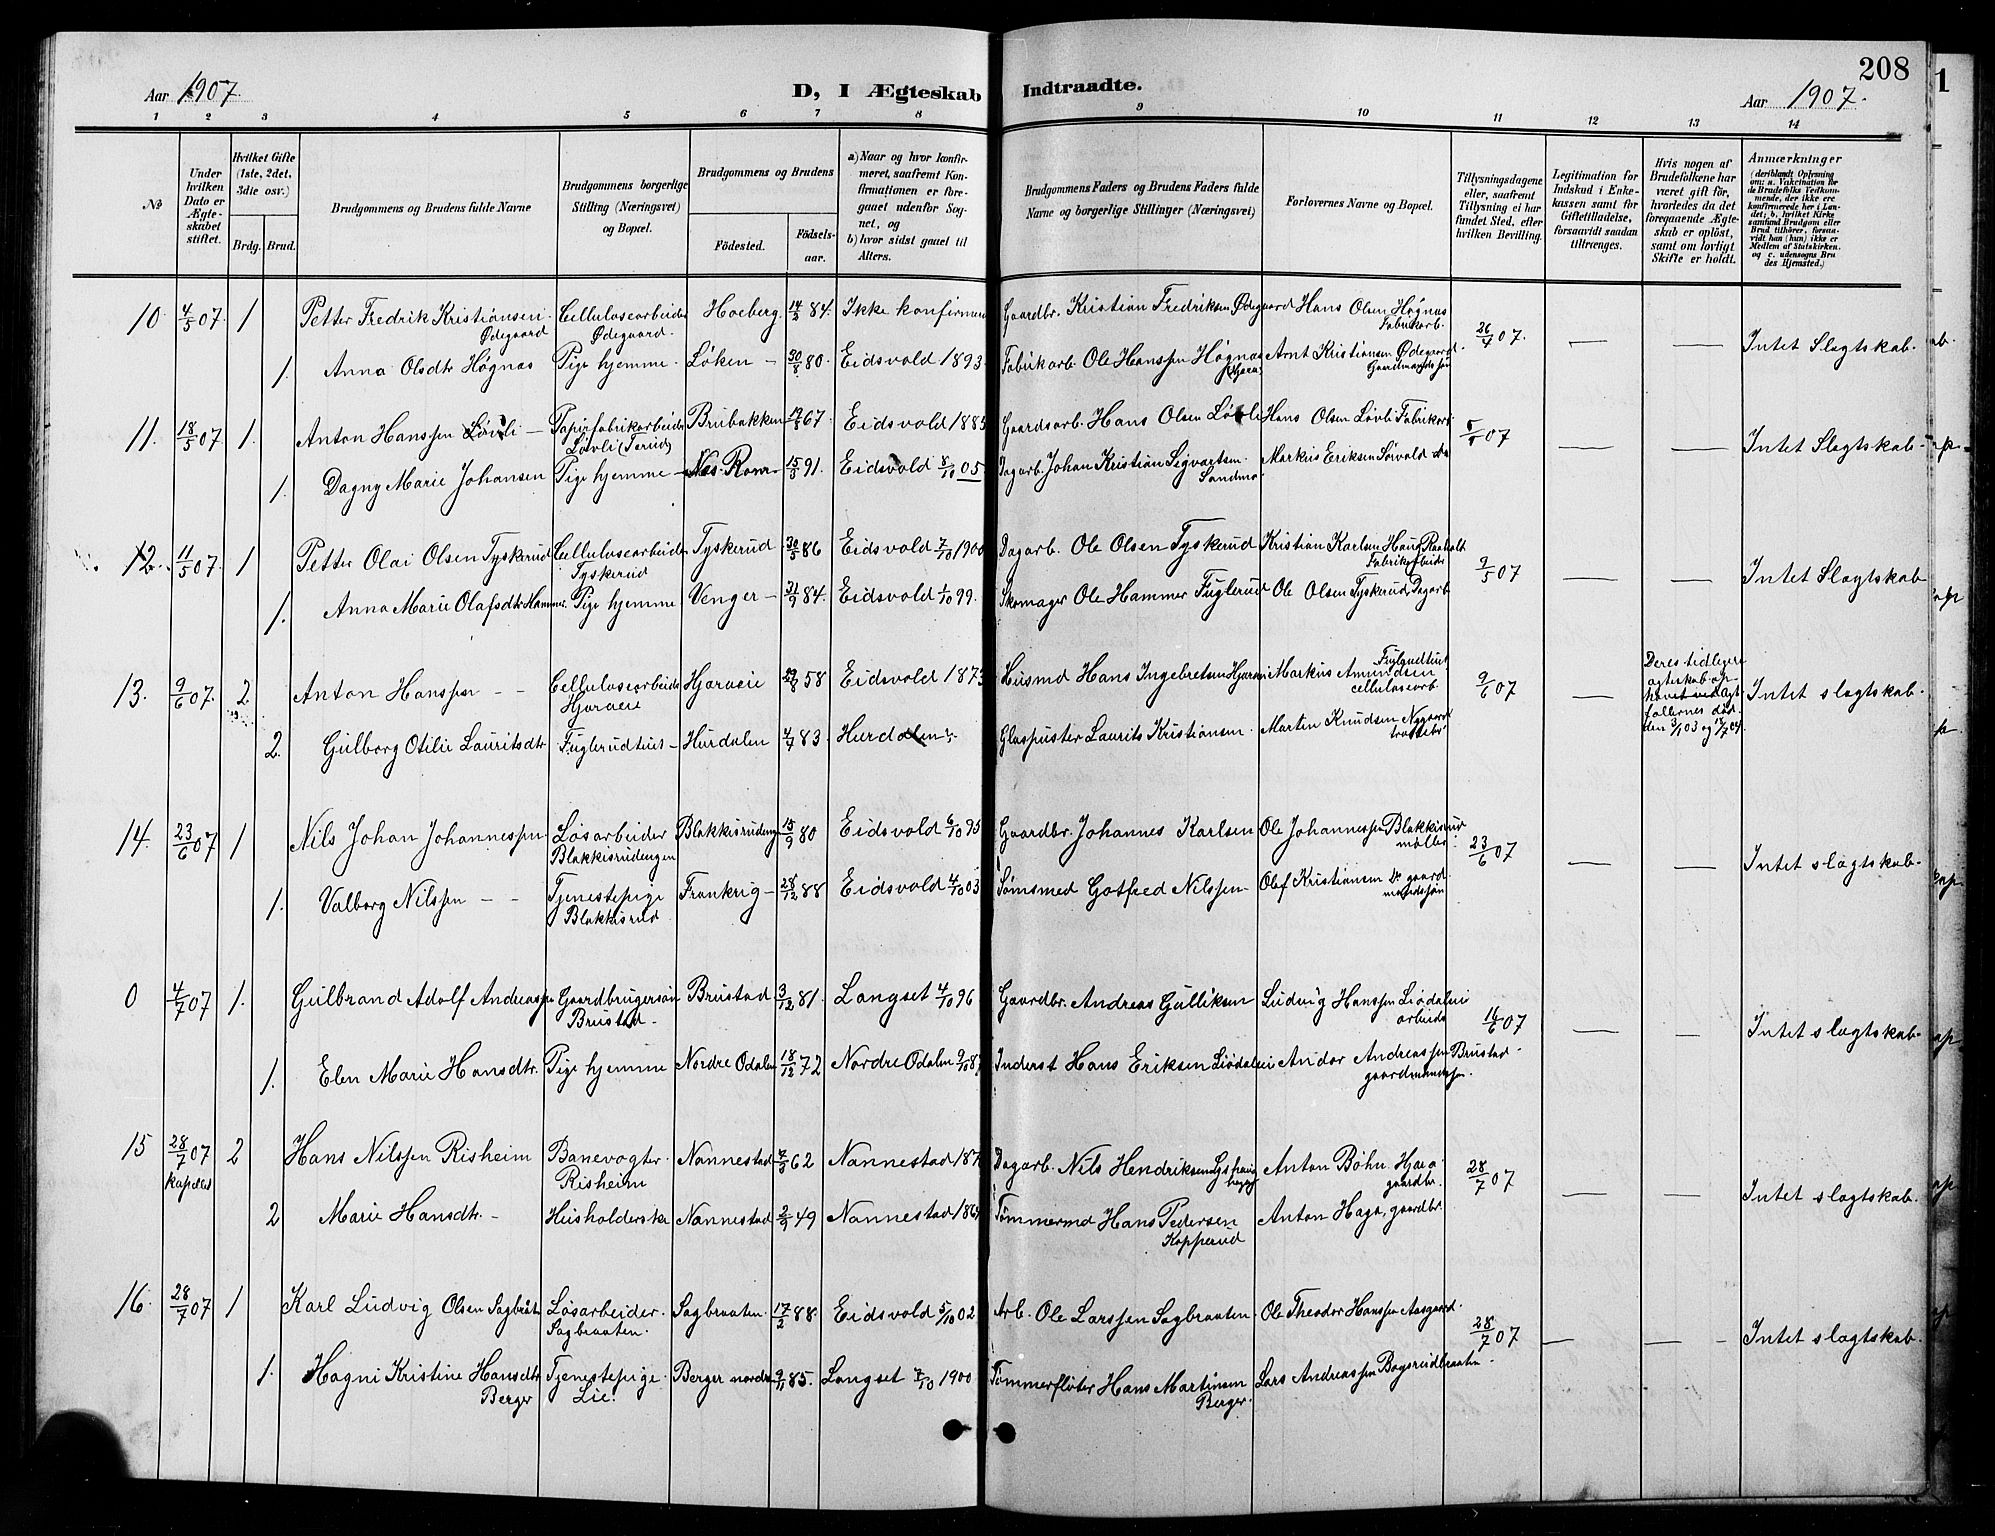 208
Aar 1907.
D, I Ægteskab Indtraadte.
Aar 1907.
1 2 3 4 5 6 7 8 9 10 11 12 13 14
No
Under hvilken Dato er Ægteskabet stiftet.
Hvilket Gifte (1ste, 2det, 3die osv.)
Brdg. Brud.
Brudgommens og Brudens fulde Navne
Brudgommens borgerlige Stilling (Næringsvei) og Bopæl.
Brudgommens og Brudens
Fødested.
Fødselsaar.
a) Naar og hvor konfirmeret, saafremt Konfirmationen er foregaaet udenfor Sognet, og
b) hvor sidst gaaet til Alters.
Brudgommens Faders og Brudens Faders fulde Navne og borgerlige Stillinger (Næringsvei)
Forlovernes Navne og Bopæl.
Tillysningsdagene eller, saafremt Tillysning ei har fundet Sted, efter hvilken Bevilling.
Legitimation for Indskud i Enkekassen samt for Giftetilladelse, forsaavidt saadan tiltrænges.
Hvis nogen af Brudefolkene har været gift før, hvorledes da det foregaaende Ægteskab er opløst, samt om lovligt Skifte er holdt.
Anmærkninger (deriblandt Oplysning om: a. Vakcination for de Brudefolks Vedkommende, der ikke ere konfirmerede her i Landet; b. hvilket Kirkesamfund Brudgom eller Brud tilhører, forsaavidt han (hun) ikke er Medlem af Statskirken. og c. udensogns Brudes Hjemsted.)
10. 4/5 07. 1 Petter Fredrik Kristiansen Ødegaard Cellulosearbeider Ødegaard. Hoeberg. 14/2 84. Ikke konfirmeret Gaardbr. Kristian Fredriksen Ødegaard Hans Olsen Høgnas Fabrikarb. 26/4 07. Intet Slegtskab.
1. Anna Olsdtr Høgnas Pige hjemme. Løken 30/8 80. Eidsvold 1893. Fabrikarb. Ole Hanssen Høgnas Arnt Kristiansen Ødegaard Gaardmandssøn
11. 18/5 07 1. Anton Hanssen Løvli Papirfabrikarbeider Løvli (Terud) Brubakken 67 Eidsvold 1883 Gaardsarb. Hans Olsen Løvli Hans Olsen Løvli Fabrikarb. 07 Intet Slegtskab
1. Dagny Marie Johansen Pige hjemme Nes. Rom. 91. Eidsvold 8/10 05. Dagarb. Johan Kristian Sigvartsen. Sandmo. Markus Eriksen
12. 11/5 07. 1 Petter Olai Olsen Tyskerud Cellulosearbeider Tyskerud Tyskerud 30/5 86 Eidsvold 7/10 1900 Dagarb. Ole Olsen Tyskerud Kristian Karlsen Haug Raaholt Fabrikarbeider 9/5 07 Intet Slegtskab
1. Anna Marie Olafsdtr Hammer. Pige hjemme Venger 84. Eidsvold 1/10 99. Skomager Ole Hammer Fuglerud Ole Olsen Tyskerud, Dagarb
13. 9/6 07. 2. Anton Hanssen Cellulosearbeider Hjeraeie Hjeraeie 58 Eidsvold 1873 Husmd Hans Ingebretsen Markus Amundsen Fuglerudtuet cellulosearb 9/6 07 Deres tidligere ægteskab ophævet ved ægtefællernes død den 3/1 03 og 04. Intet slegtskab.
2. Gulborg Otilie Lauritsdtr Fuglerudtuet Hurdalen 4/7 83. Hurdalen Glaspuster Laurits Kristiansen. Marten Knudsen Nygaard
14. 23/6 07 1 Nils Johan Johannessen Løsarbeider Blakkisrudengen Blakkisrudengen 15/9 80 Eidsvold 6/10 95 Gaardbr. Johannes Karlsen Ole Johannessen Blakkisrud møller 23/6 07 Intet slegtskab.
1. Valborg Nilssen Tjenestepige Blakkisrud Frankrig 28/12 88 Eidsvold 4/10 03 Sømsmed Gotfred Nilssen Olaf Kristiansen Do gaardmandssøn
0 4/7 07 1. Gulbrand Adolf Andreassen Gaardbrugersøn Brustad Brustad 3/12 81. Langset 4/10 96 Gaardbr. Andreas Gulliksen Ludvig Hanssen Liødaleie arbeider 16/6 07 Intet slegtskab.
1. Elen Marie Hansdtr. Pige hjemme Nordre Odalen 18/12 72 Nordre Odalen 9/10 87 Inderst Hans Eriksen Liødaleie Andor Andreassen Brustad gaardmandssøn.
15 28/7 07 kapellet 2 Hans Nilssen Risheim Banevogter. Risheim Nannestad 62 Nannestad Dagarb. Nils Hendriksen Anton Bøhn. Hjera gaardbr. 28/7 07 Intet slegtskab.
2 Marie Hansdtr. Husholderske Nannestad 2/9 49 Nannestad Tømmermd Hans Pedersen Kopperud Anton Haga, gaardbr.
16. 28/7 07 1 Karl Ludvig Olsen Sagbråten Løsarbeider. Sagbraaten. Sagbraaten. 17/2 88. Eidsvold 5/10 02 Arb. Ole Larssen Sagbraaten. Ole Theodor Hanssen Aasgaard. 28/7 07 Intet slegtskab.
1. Hagni Kristine Hansdtr Berger Tjenestepige Lie. Berger nordre 9/11 85. Langset 7/10 1900 Tømmerfløter Hans Martinsen Berger. Lars Andreassen Bøgsrudbraaten